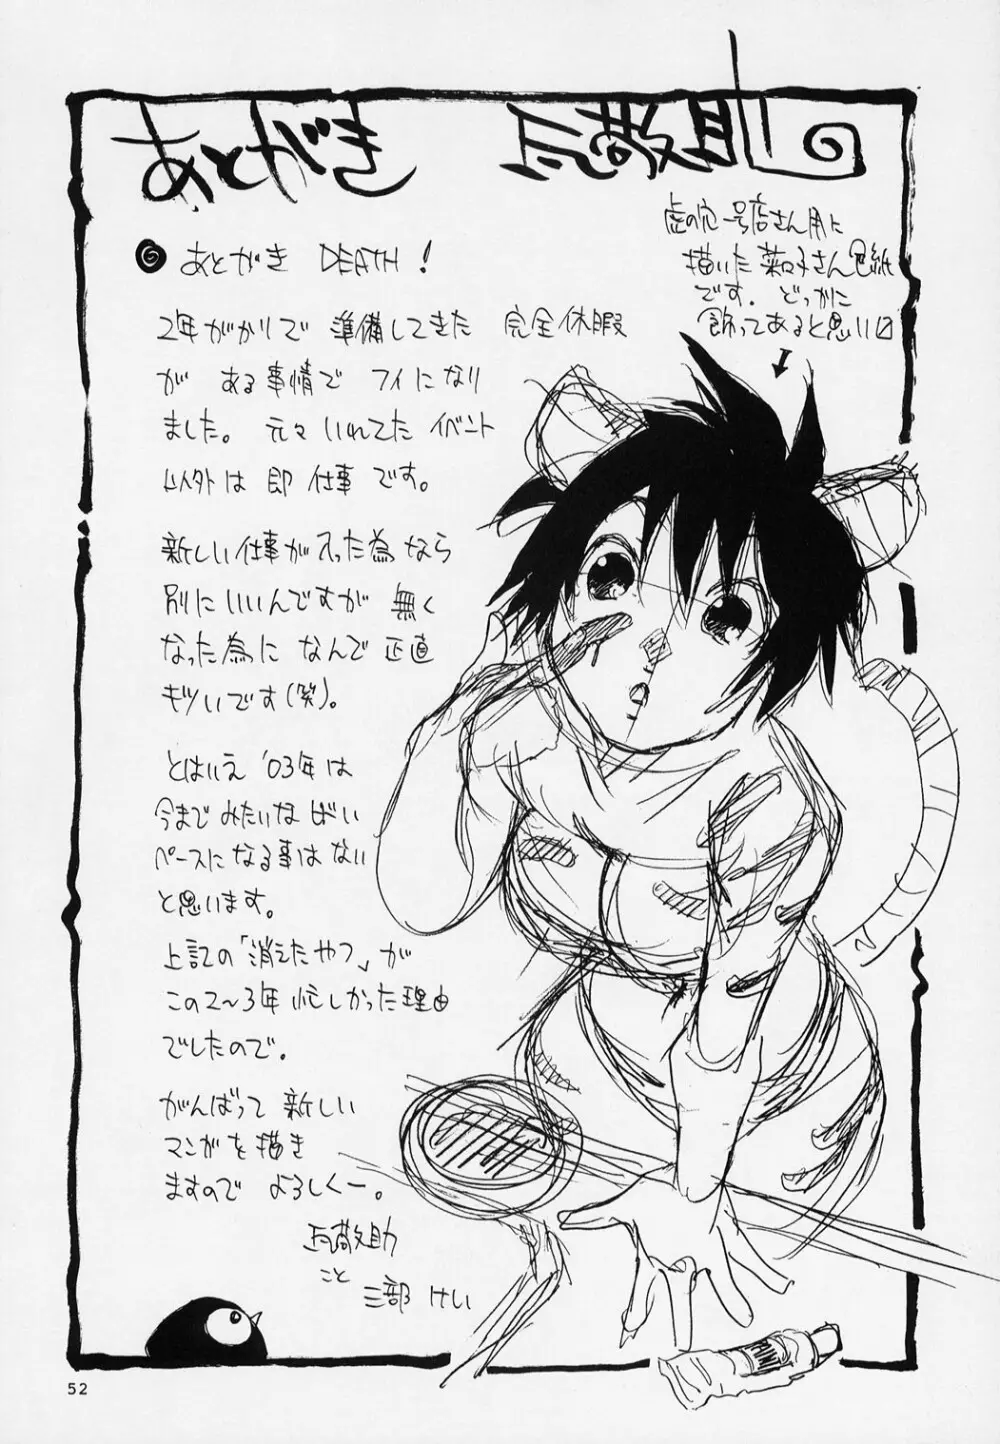 あとがき 瓦敬助の
虎の穴一号店さん用に
描いた菜々子さん色紙
です。どっかに
飾ってあると思い〼
あとがき DEATH!
2年がかりで 準備してきた 完全休暇
が ある事情で フイになり
ました。 元々 いれてた イベント
以外は 即 仕事 です。
新しい仕事が入った為なら
別にいいんですが 無く
なった為に なんで 正直
キツいです(笑)。
とはいえ '03年は
今まで みたいな ばい
ペースになる事はない
と思います。
上記の「消えたやつ」が
この2〜3年 忙しかった理由
でしたので。
がんばって 新しい
マンガを描き
ますので よろしくー。
瓦敬助
こと
三部 けい
52